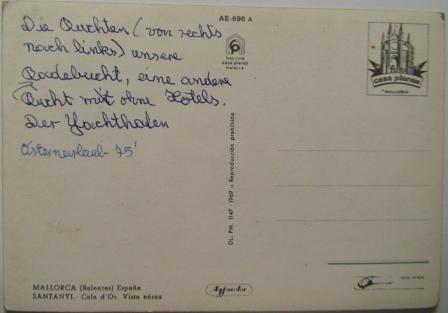 AE-696 A
Die Buchten (von rechts
nach links) unsere
Badebucht, eine andere
Bucht mit ohne Hotels.
Der Yachthafen
Osterurlaub 75'
foto-cine
casa planas
mallorca
casa planas
MALLORCA
DL. PM. 1147 - 1969 :: Reproducción prohibida
MALLORCA (Baleares) España
SANTANYI.- Cala d'Or. Vista aérea
Agfacolor